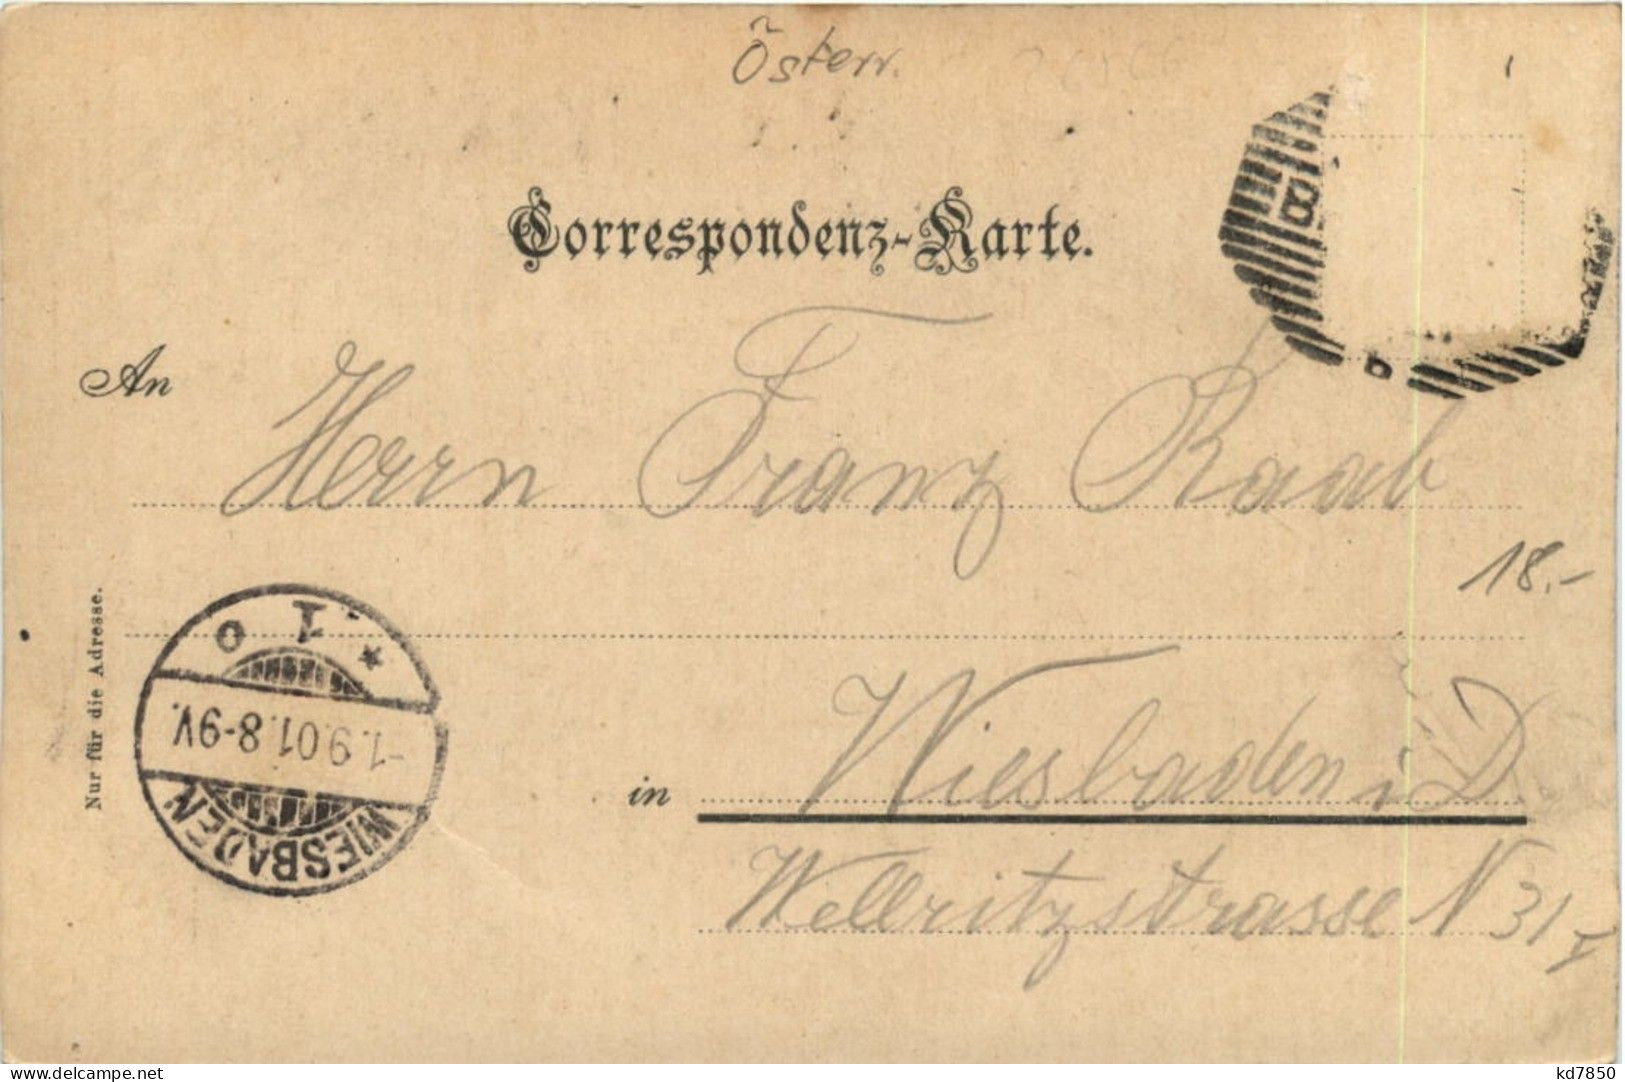 Österr.
Correspondenz-Karte.
An
Herrn Franz Raab
18.-
Nur für die Adresse.
WIESBADEN
-1.9.01.8-9V.
in Wiesbaden i D
Wellritzstrasse N 31 I
delcampe.net
kd7850